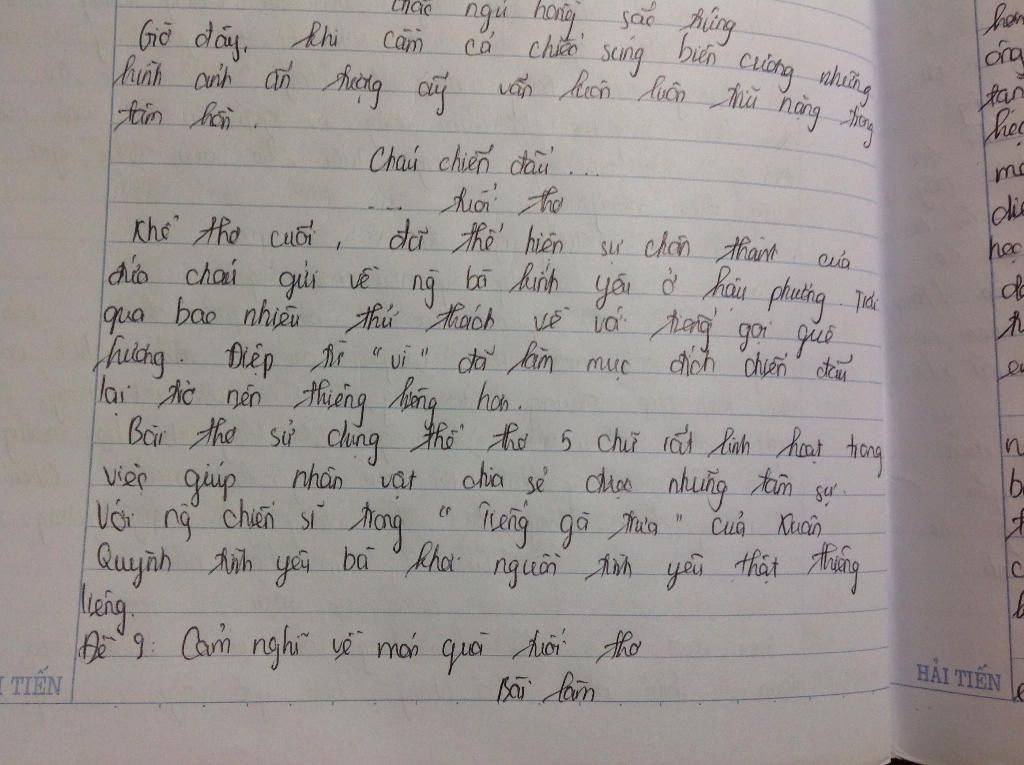 ngủ hồng sắc trứng
Giờ đây, khi cầm cả chiếc súng biên cương những
hình ảnh ấn tượng ấy vẫn luôn luôn thủ nặng trong
tâm hồn.
Cháu chiến đấu ...
.... tuổi thơ
Khổ thơ cuối, đã thể hiện sự chân thành của
đứa cháu gửi về ng bà kính yêu ở hậu phương. Trải
qua bao nhiêu thử thách về với tiếng gọi quê
hương. Điệp từ "vì" đã làm mục đích chiến đấu
lại trở nên thiêng liêng hơn.
Bài thơ sử dụng thể thơ 5 chữ rất linh hoạt trong
việc giúp nhân vật chia sẻ được những tâm sự.
Với ng chiến sĩ trong "Tiếng gà trưa" của Xuân
Quỳnh tình yêu bà khơi nguồn tình yêu thật thiêng
liêng.
Đề 9: Cảm nghĩ về món quà tuổi thơ
Bài làm
I TIẾN
HẢI TIẾN